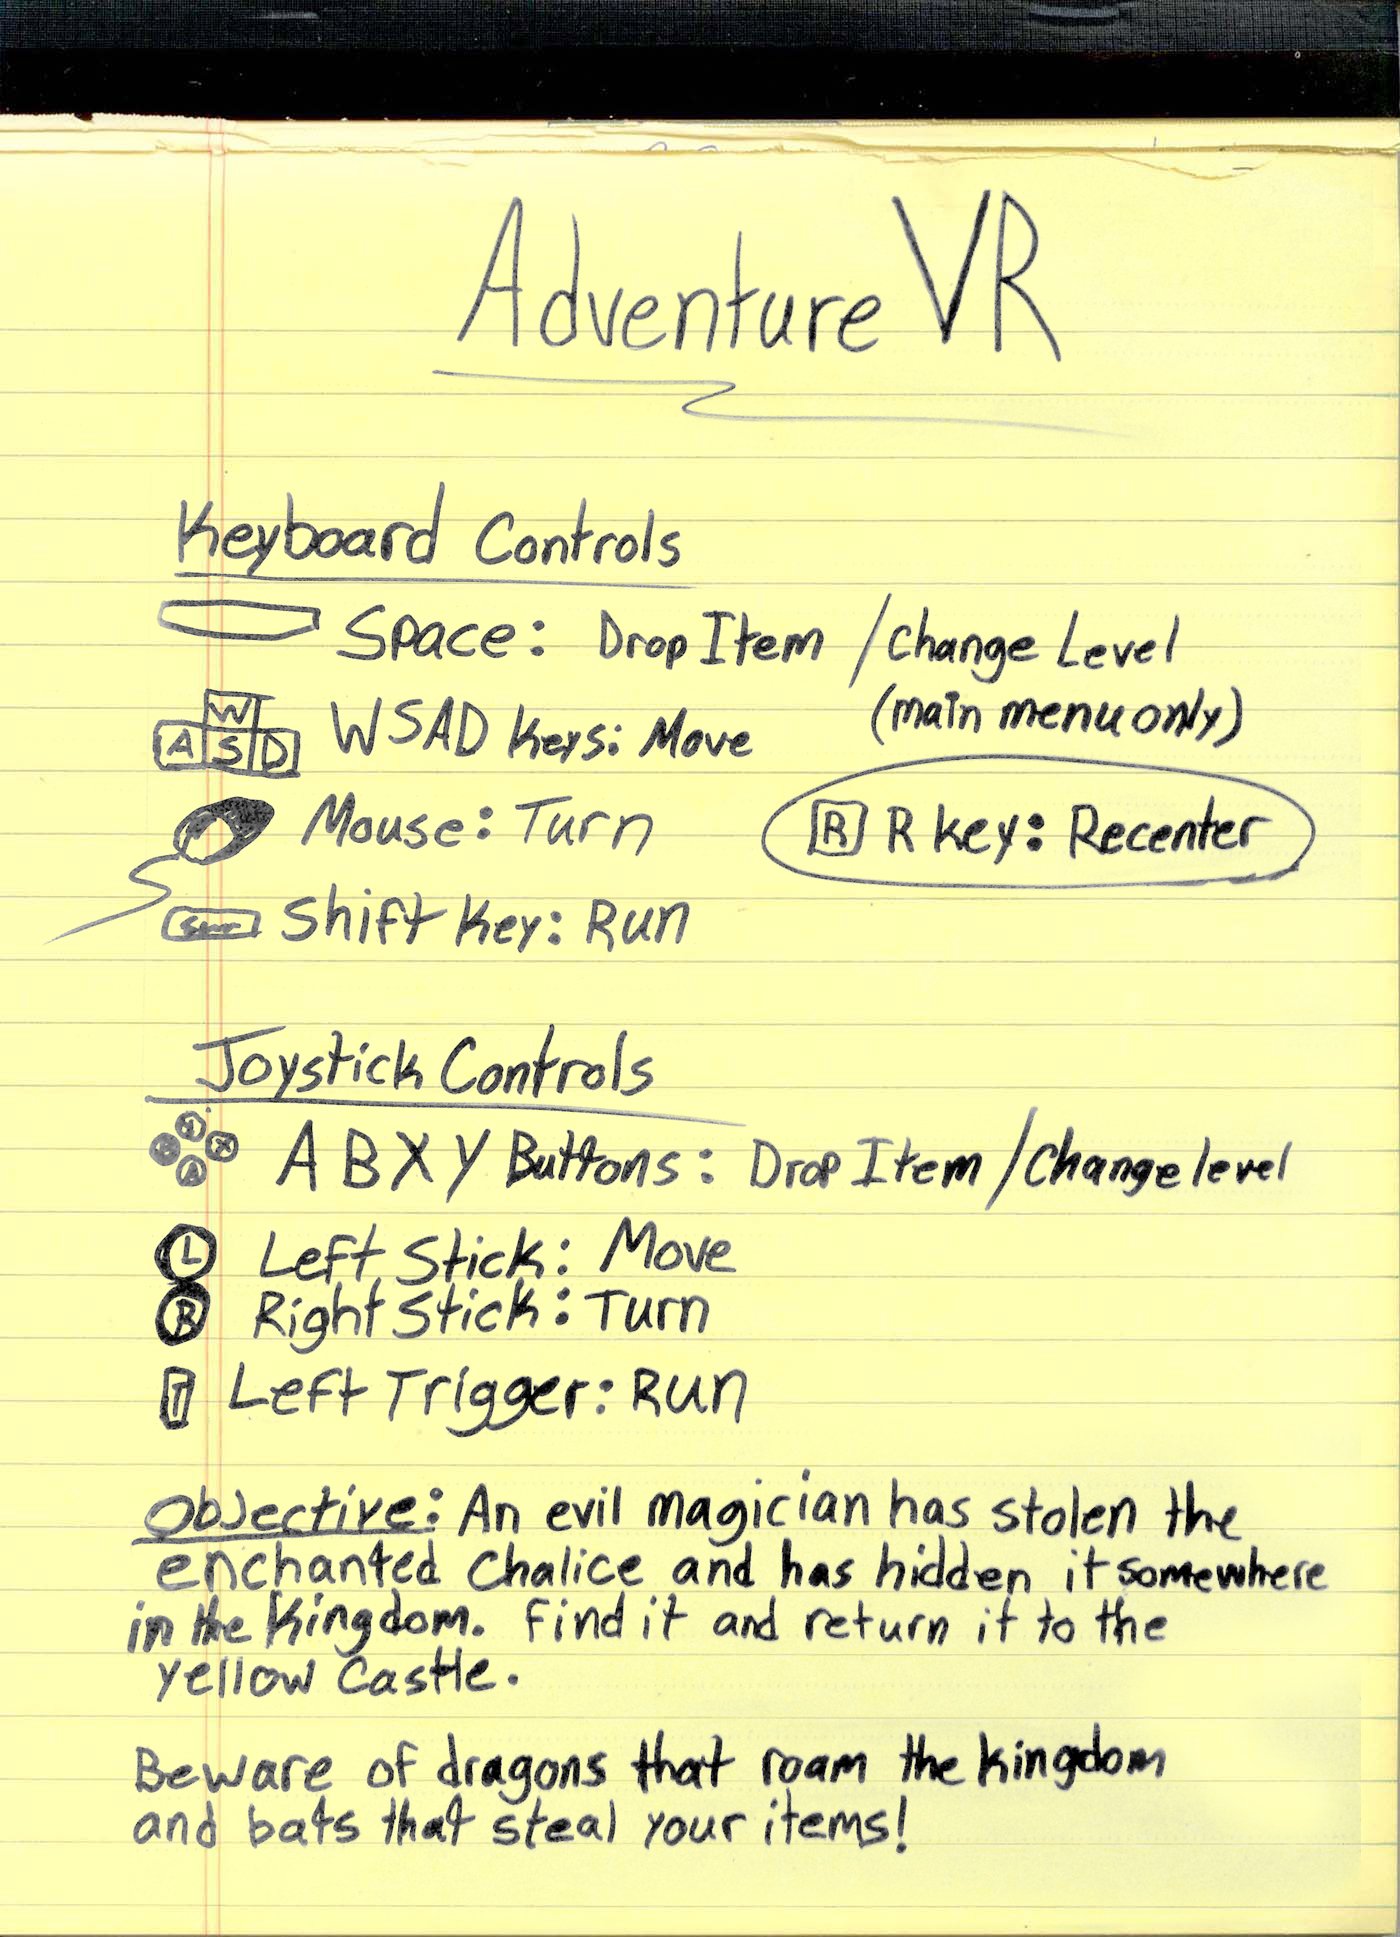 Adventure VR
Keyboard Controls
Space: Drop Item / Change Level
(main menu only)
W
A S D WSAD Keys: Move
Mouse: Turn
R R Key: Recenter
Shift Key: Run
Joystick Controls
A B X Y Buttons: Drop Item / Change level
L Left Stick: Move
R Right Stick: Turn
T Left Trigger: Run
Objective: An evil magician has stolen the
enchanted Chalice and has hidden it somewhere
in the Kingdom. Find it and return it to the
yellow Castle.
Beware of dragons that roam the kingdom
and bats that steal your items!